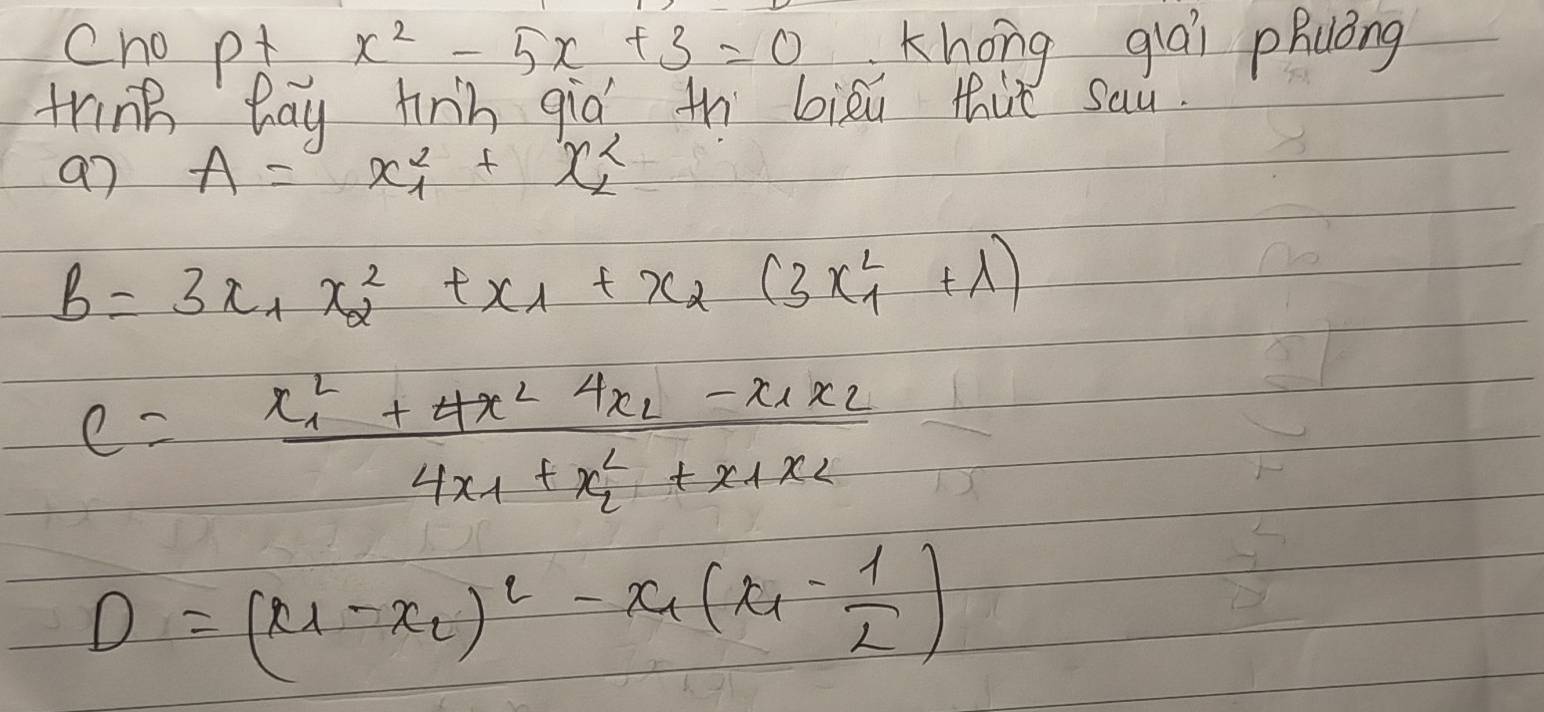 Cho pt x² - 5x + 3 = 0. Không giải phương
trình hãy tính giá trị biểu thức sau.
a) A = x₁² + x₂²
B = 3x₁ x₂² + x₁ + x₂ (3x₁² + 1)
C = (x₁² + 4x² 4x₂ - x₁x₂) / (4x₁ + x₂² + x₁x₂)
D = (x₁ - x₂)² - x₁(x₁ - 1/2)